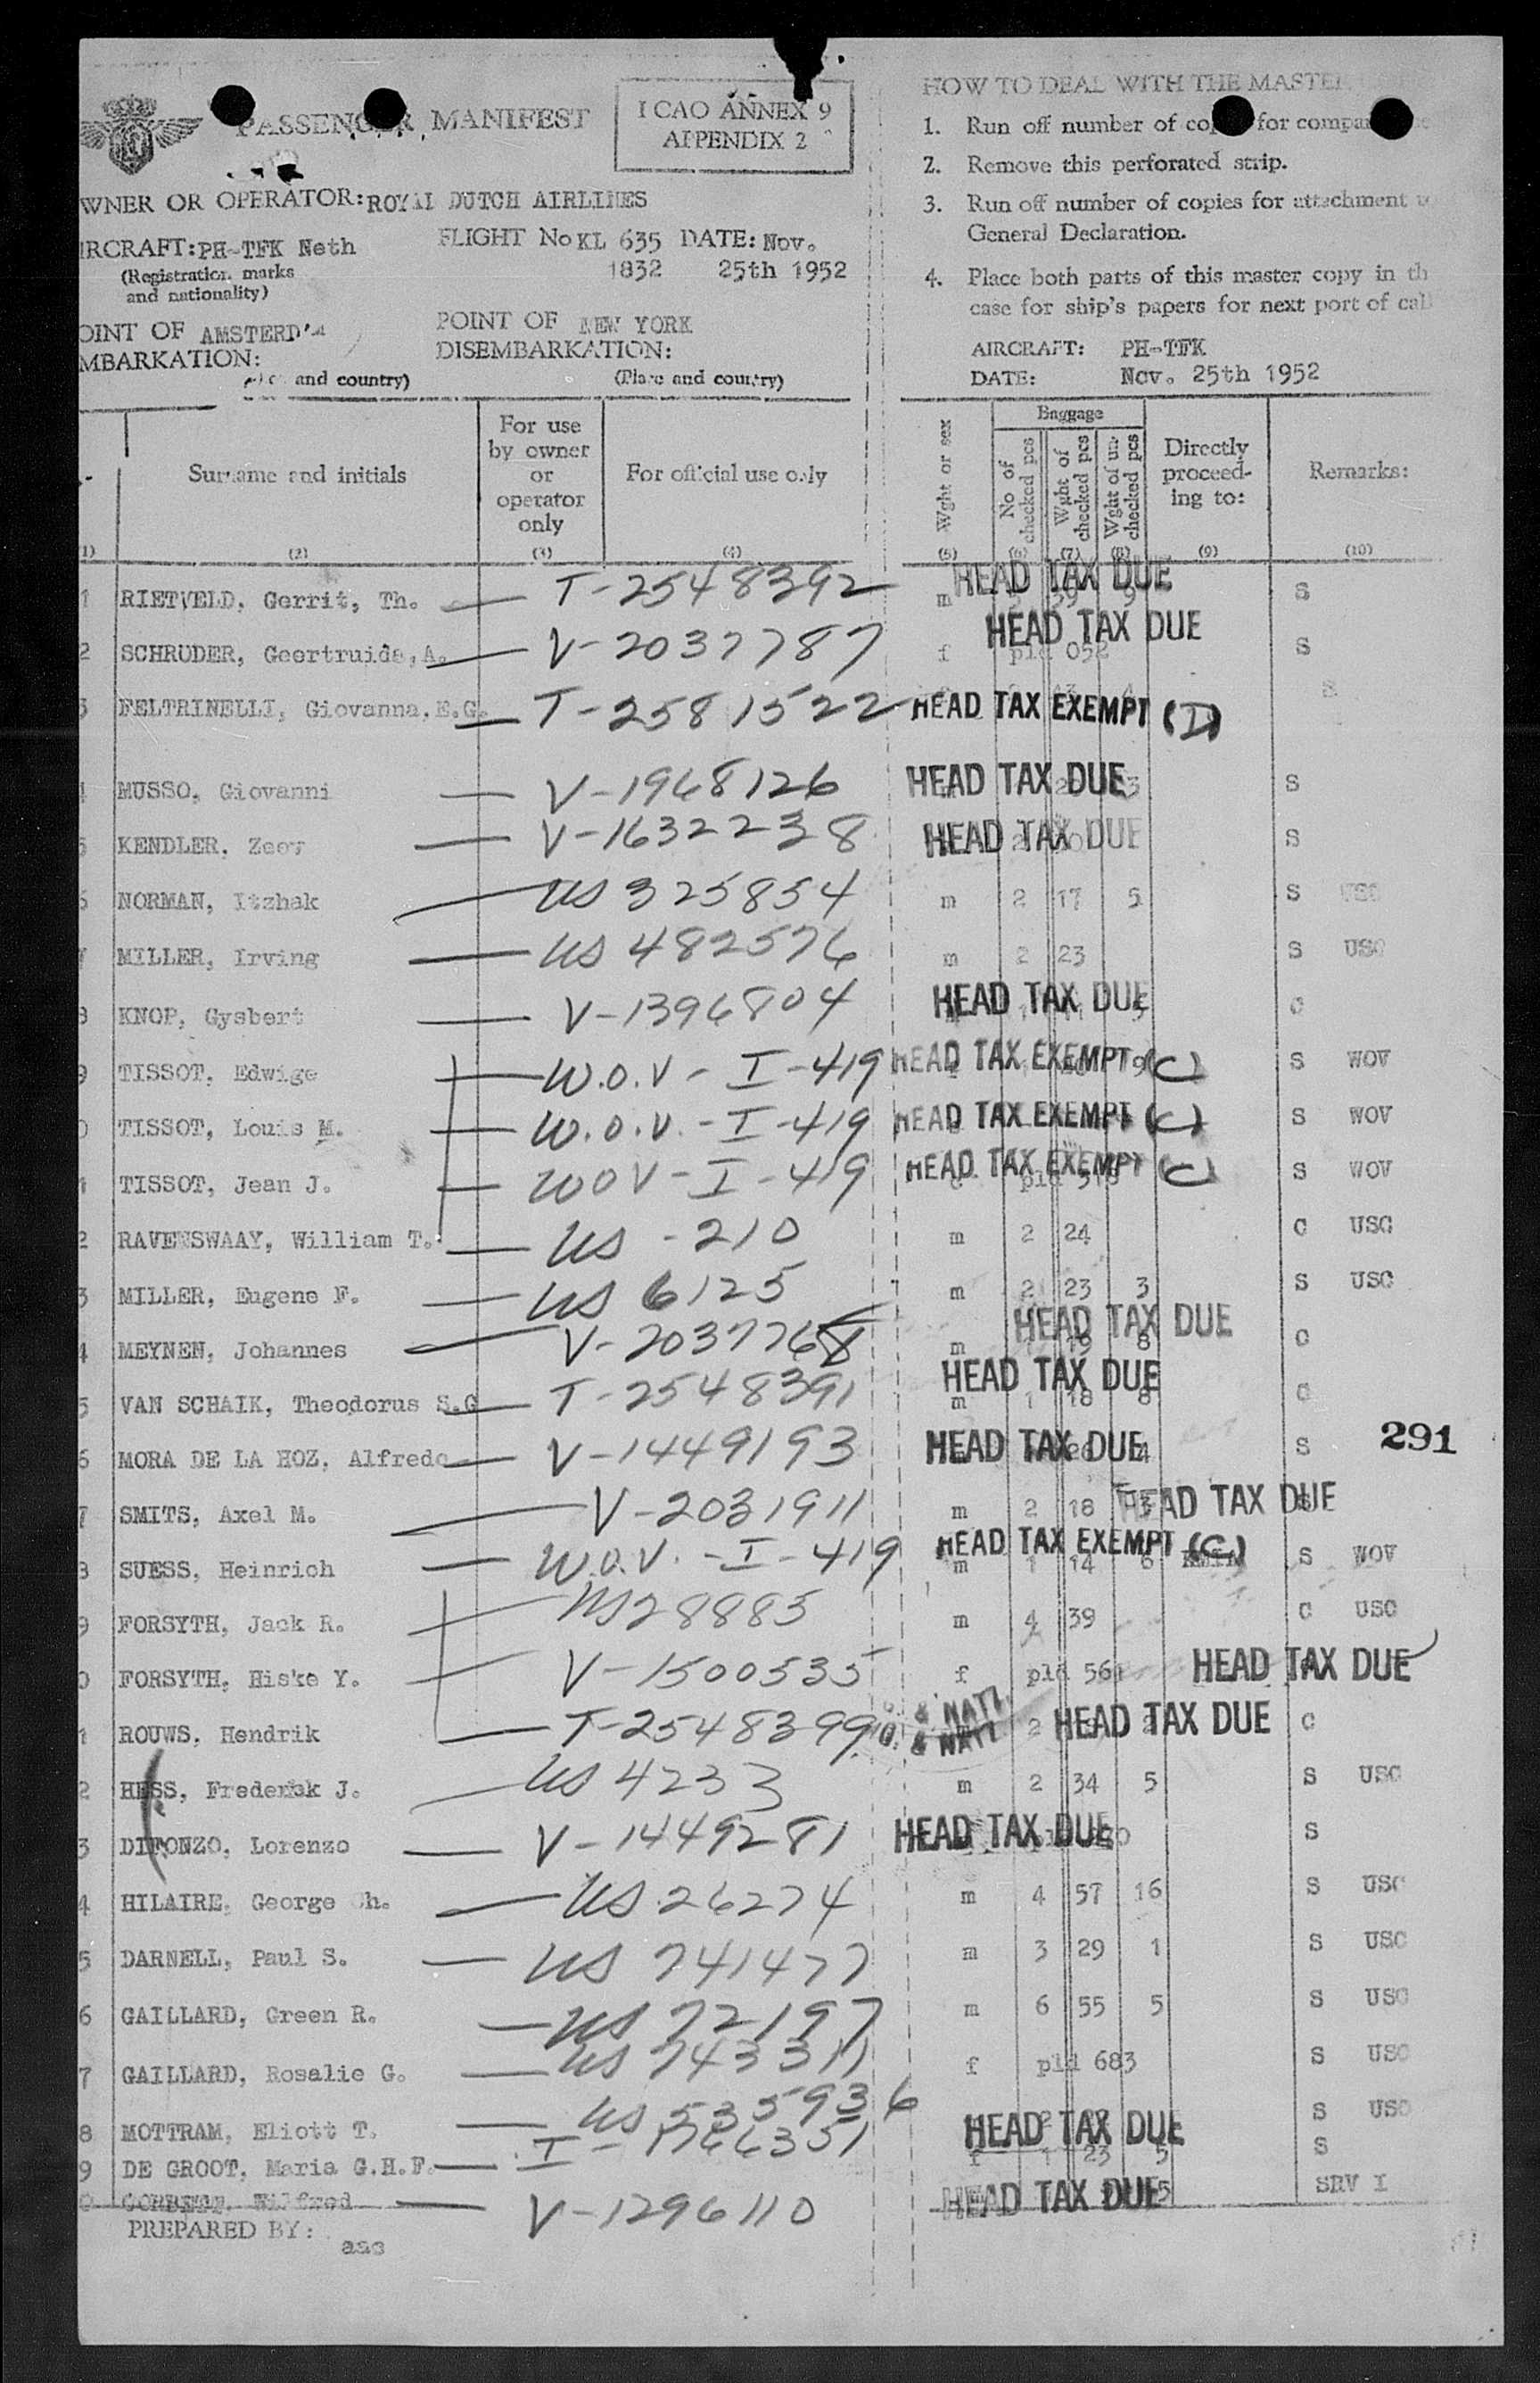 PASSENGER MANIFEST
ICAO ANNEX 9
APPENDIX 2
WNER OR OPERATOR: ROYAL DUTCH AIRLINES
IRCRAFT: PH-TFK Neth
(Registration marks
and nationality)
FLIGHT No KL 635 DATE: Nov.
1832 25th 1952
OINT OF AMSTERD'M
MBARKATION:
and country)
POINT OF NEW YORK
DISEMBARKATION:
(Place and country)
HOW TO DEAL WITH THE MASTER
1. Run off number of for
2. Remove this perforated strip.
3. Run off number of copies for attachment
General Declaration.
4. Place both parts of this master copy in th
case for ship's papers for next port of cal
AIRCRAFT: PH-TFK
DATE: Nov. 25th 1952
Surname and initials
For use
by owner
or
operator
only
For official use only
Wght or sex
Baggage
No of
checked pcs
Wght of
checked pcs
Wght of un-
checked pcs
Directly
proceed-
ing to:
Remarks:
1) (2) (3) (4) (5) (6) (7) (8) (9) (10)
1 RIETVELD, Gerrit, Th. — T-2548392 m 39 9 HEAD TAX DUE S
2 SCHRUDER, Geertruida, A. — V-2037787 f pld 052 HEAD TAX DUE S
3 FELTRINELLI, Giovanna, E.G. — T-2581522 HEAD TAX EXEMPT (I) S
4 MUSSO, Giovanni — V-1968126 HEAD TAX DUE 3 S
5 KENDLER, Zeev — V-1632238 HEAD TAX DUE S
6 NORMAN, Itzhak — US 325854 m 2 17 5 S USC
7 MILLER, Irving — US 482576 m 2 23 S USC
8 KNOP, Gysbert — V-1396804 HEAD TAX DUE C
9 TISSOT, Edwige — W.O.V - I-419 HEAD TAX EXEMPT 9 (C) S WOV
0 TISSOT, Louis M. — W.O.V. - I-419 HEAD TAX EXEMPT (C) S WOV
1 TISSOT, Jean J. — WOV - I-419 HEAD TAX EXEMPT (C) pld 518 S WOV
2 RAVENSWAAY, William T. — US - 210 m 2 24 C USC
3 MILLER, Eugene F. — US 6125 m 2 23 3 S USC
4 MEYNEN, Johannes — V-2037768 m 19 8 HEAD TAX DUE C
5 VAN SCHAIK, Theodorus S.G — T-2548391 m 1 18 8 HEAD TAX DUE C
6 MORA DE LA HOZ, Alfredo — V-1449193 HEAD TAX DUE 4 S
291
7 SMITS, Axel M. — V-2031911 m 2 18 3 HEAD TAX DUE S
8 SUESS, Heinrich — W.O.V. - I-419 HEAD TAX EXEMPT (C) m 1 14 6 S WOV
9 FORSYTH, Jack R. — US28885 m 4 39 C USC
0 FORSYTH, Hiske Y. — V-1500535 f pld 561 HEAD TAX DUE
1 ROUWS, Hendrik — T-2548399 & NATZ. & NATZ 2 HEAD TAX DUE C
2 HESS, Frederick J. — US 4233 m 2 34 5 S USC
3 DIFONZO, Lorenzo — V-1449281 HEAD TAX DUE S
4 HILAIRE, George Ch. — US 26274 m 4 57 16 S USC
5 DARNELL, Paul S. — US 741477 m 3 29 1 S USC
6 GAILLARD, Green R. — US 72197 m 6 55 5 S USC
7 GAILLARD, Rosalie G. — US 743311 f pld 683 S USC
8 MOTTRAM, Eliott T. — US 535936 S USC
9 DE GROOT, Maria G.H.F. — I-1766351 f 1 23 5 HEAD TAX DUE S
0 Wilfred — V-1296110 HEAD TAX DUE 5 SRV I
PREPARED BY:
aac